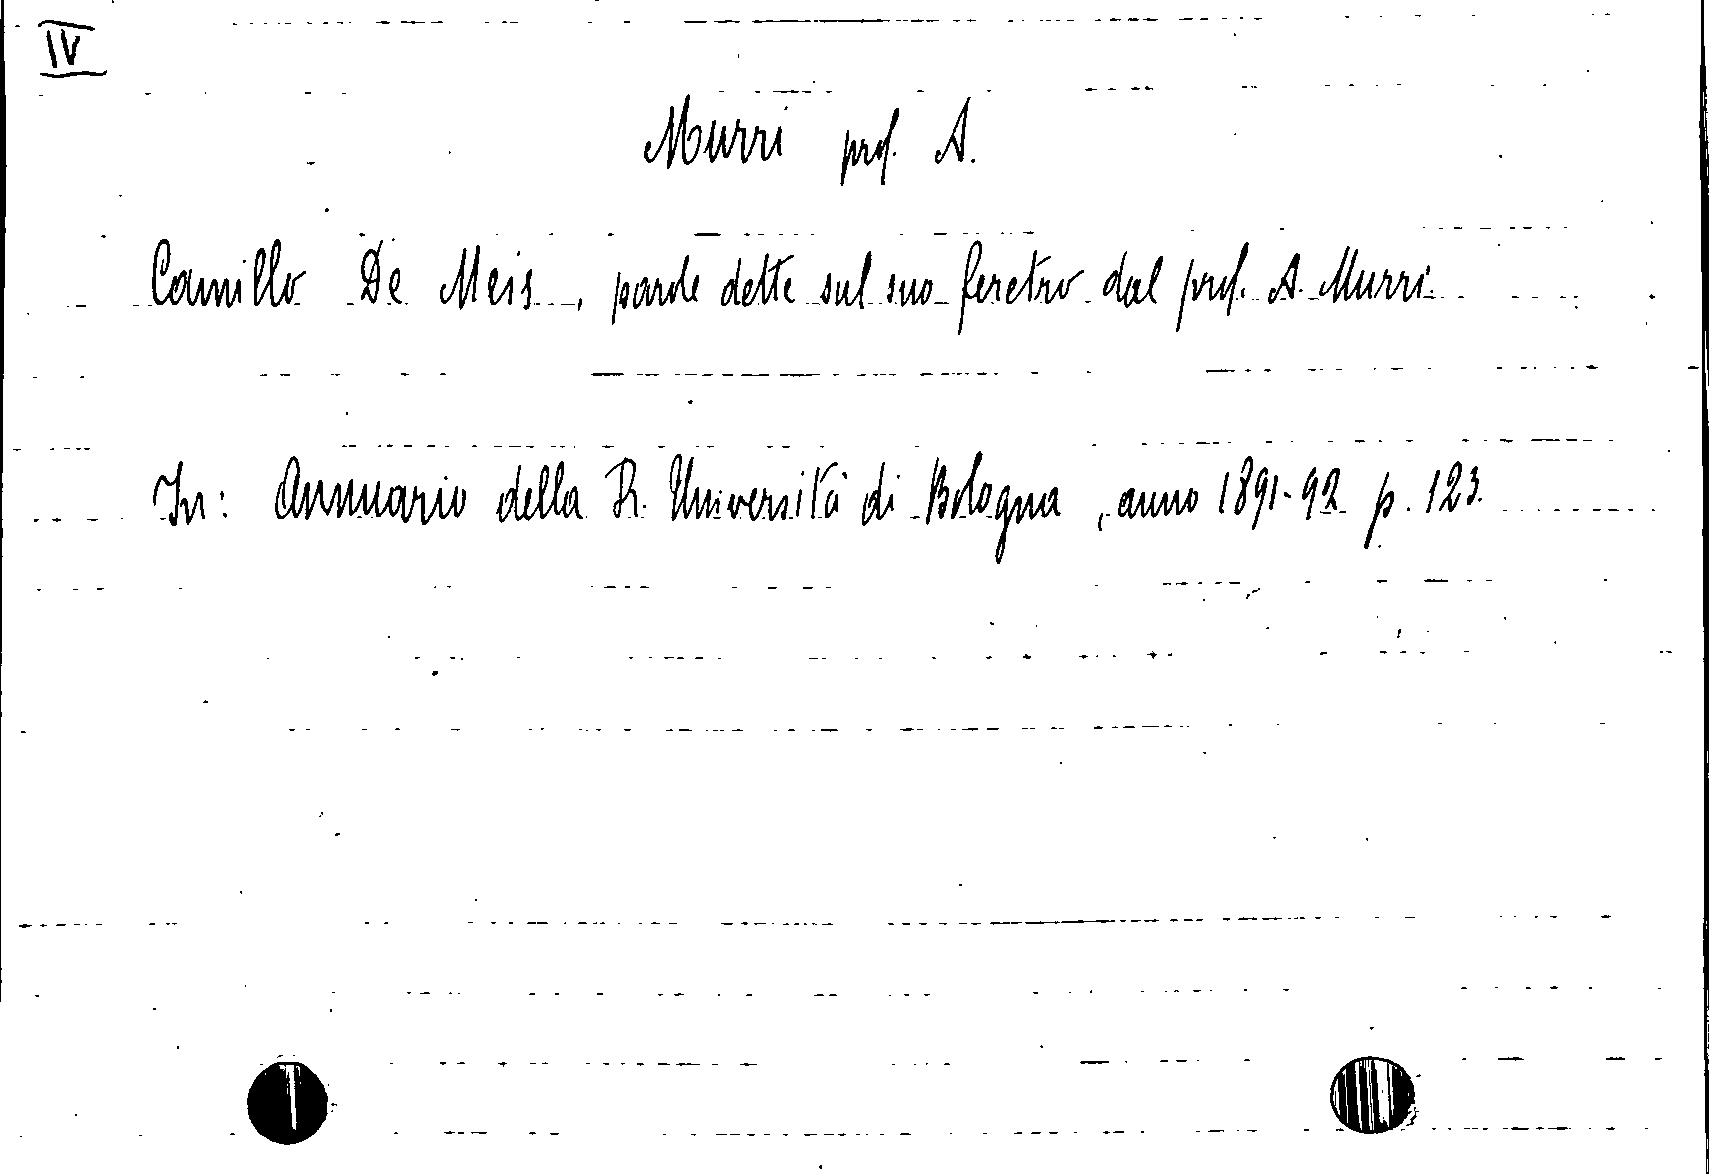 IV
Murri prof. A.
Camillo De Meis, parole dette sul suo feretro dal prof. A. Murri.
In: Annuario della R. Università di Bologna, anno 1891-92 p. 123.